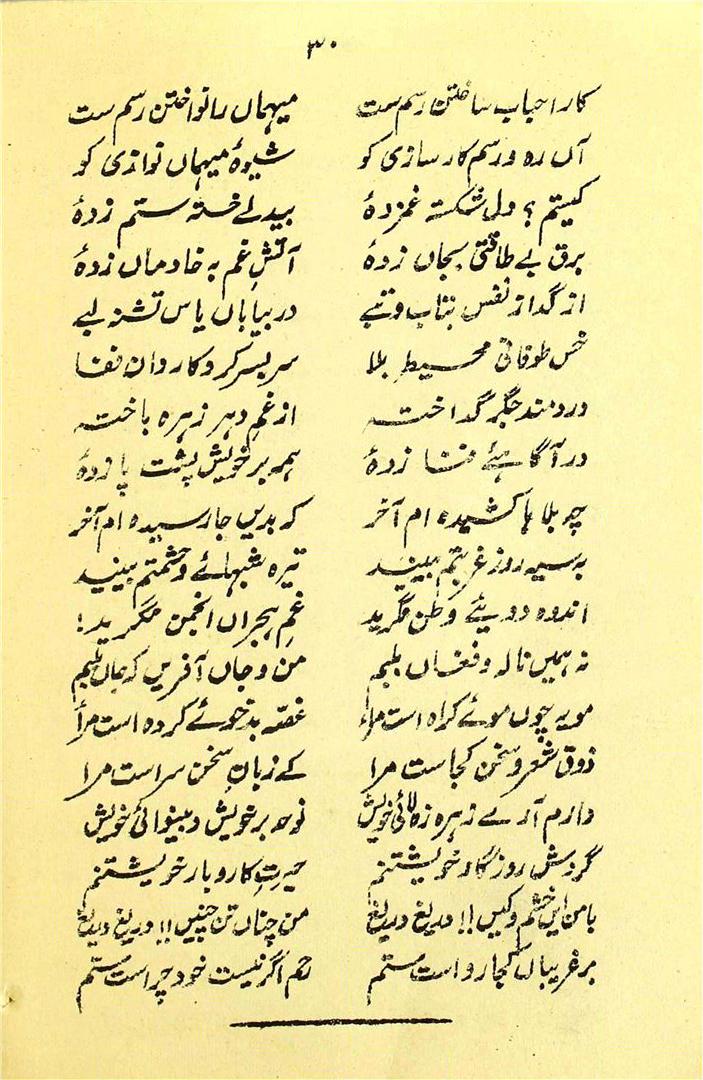 ۳۰
کار احباب ساختن رسم ست میہماں را نواختن رسم ست
آں رہ و رسم کار سازی کو شیوۂ میہاں نوازی کو
کیستم؟ دل شکستہ غمزدۂ بیدلے خستہ ستم زدۂ
برق بے طاقتی بجاں زدۂ آتشِ غم بہ خادماں زدۂ
از گداز نفس بتاب و تبے در بیاباں یاس تشنہ لبے
خس طوفانی محیطِ بلا سر بسر گرد کاروان فنا
دردمند جگر گداختہ از غم دہر زہرہ باختہ
در آگاہئے فنا زدۂ ہمہ بر خویش پشت پا زدۂ
چہ بلاہا کشیدہ ام آخر کہ بدیں جا رسیدہ ام آخر
بہ سیہ روز غربتم ببینید تیرہ شبہائے وحشتم ببینید
اندوہ دوریئے وطن مگرید غمِ ہجراں انجمن مگرید!
نہ ہمیں نالہ و فغاں بلبم من و جاں آفریں کہ جاں بلبم
مویہ چوں موئے کراہ است مراء غصہ بدخوئے کردہ است مرا
ذوق شعر و سخن کجاست مرا کے زبانِ سخن سراست مرا
دارم آرے ز ہرزہ لائی خویش نوحہ بر خویش و بینوائی خویش
گردش روزگار خویشتنم حیرتِ کاروبار خویشتنم
با من ایں خشم و کیں!! دریغ دریغ من چناں تن چنیں!! دریغ دریغ
بر غریباں کجا رواست ستم رحم اگر نیست خود چراست ستم